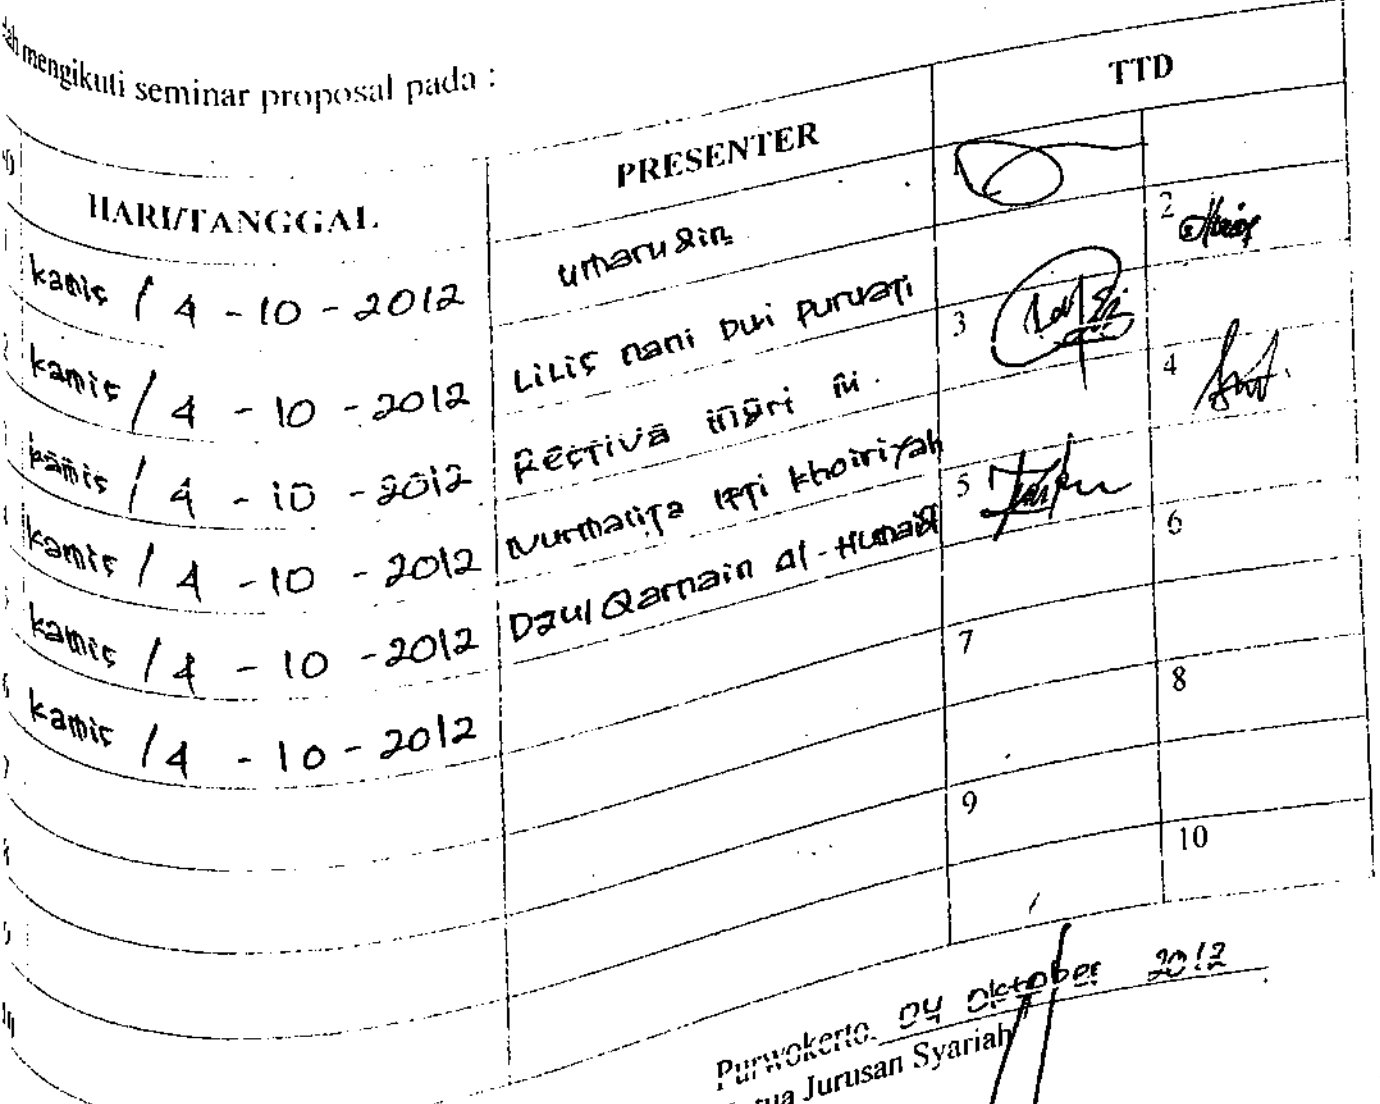 mengikuti seminar proposal pada :
HARI/TANGGAL PRESENTER TTD
kamis / 4 - 10 - 2012 umarudin 1
kamis / 4 - 10 - 2012 Lilis nani Dwi purwati 2
kamis / 4 - 10 - 2012 Restiva 3
kamis / 4 - 10 - 2012 Nurmalita khoiriyah 4
kamis / 4 - 10 - 2012 Dzul Qarnain al - Humaidi 5
6 kamis / 4 - 10 - 2012 6
7 7
8
9 9
10 10
Purwokerto, 04 Oktober 2012
Jurusan Syariah